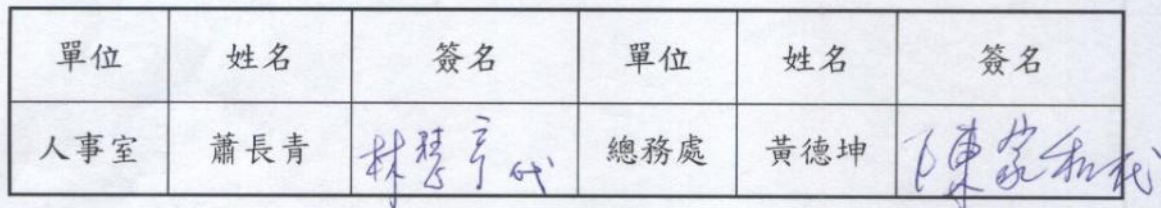 單位 姓名 簽名 單位 姓名 簽名
人事室 蕭長青 林慧亭代 總務處 黃德坤 陳家和代